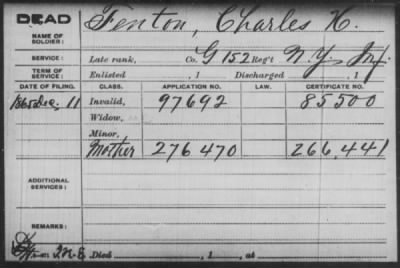 DEAD
NAME OF SOLDIER: Fenton, Charles H.
SERVICE: Late rank, Co. G 152 Reg't N.Y. Inf.
TERM OF SERVICE: Enlisted , 1 Discharged , 1
DATE OF FILING. CLASS. APPLICATION NO. LAW. CERTIFICATE NO.
1865 Dec. 11 Invalid, 97692 85500
Widow,
Minor,
Mother 276470 266,441
ADDITIONAL SERVICES:
REMARKS:
Died , 1 , at